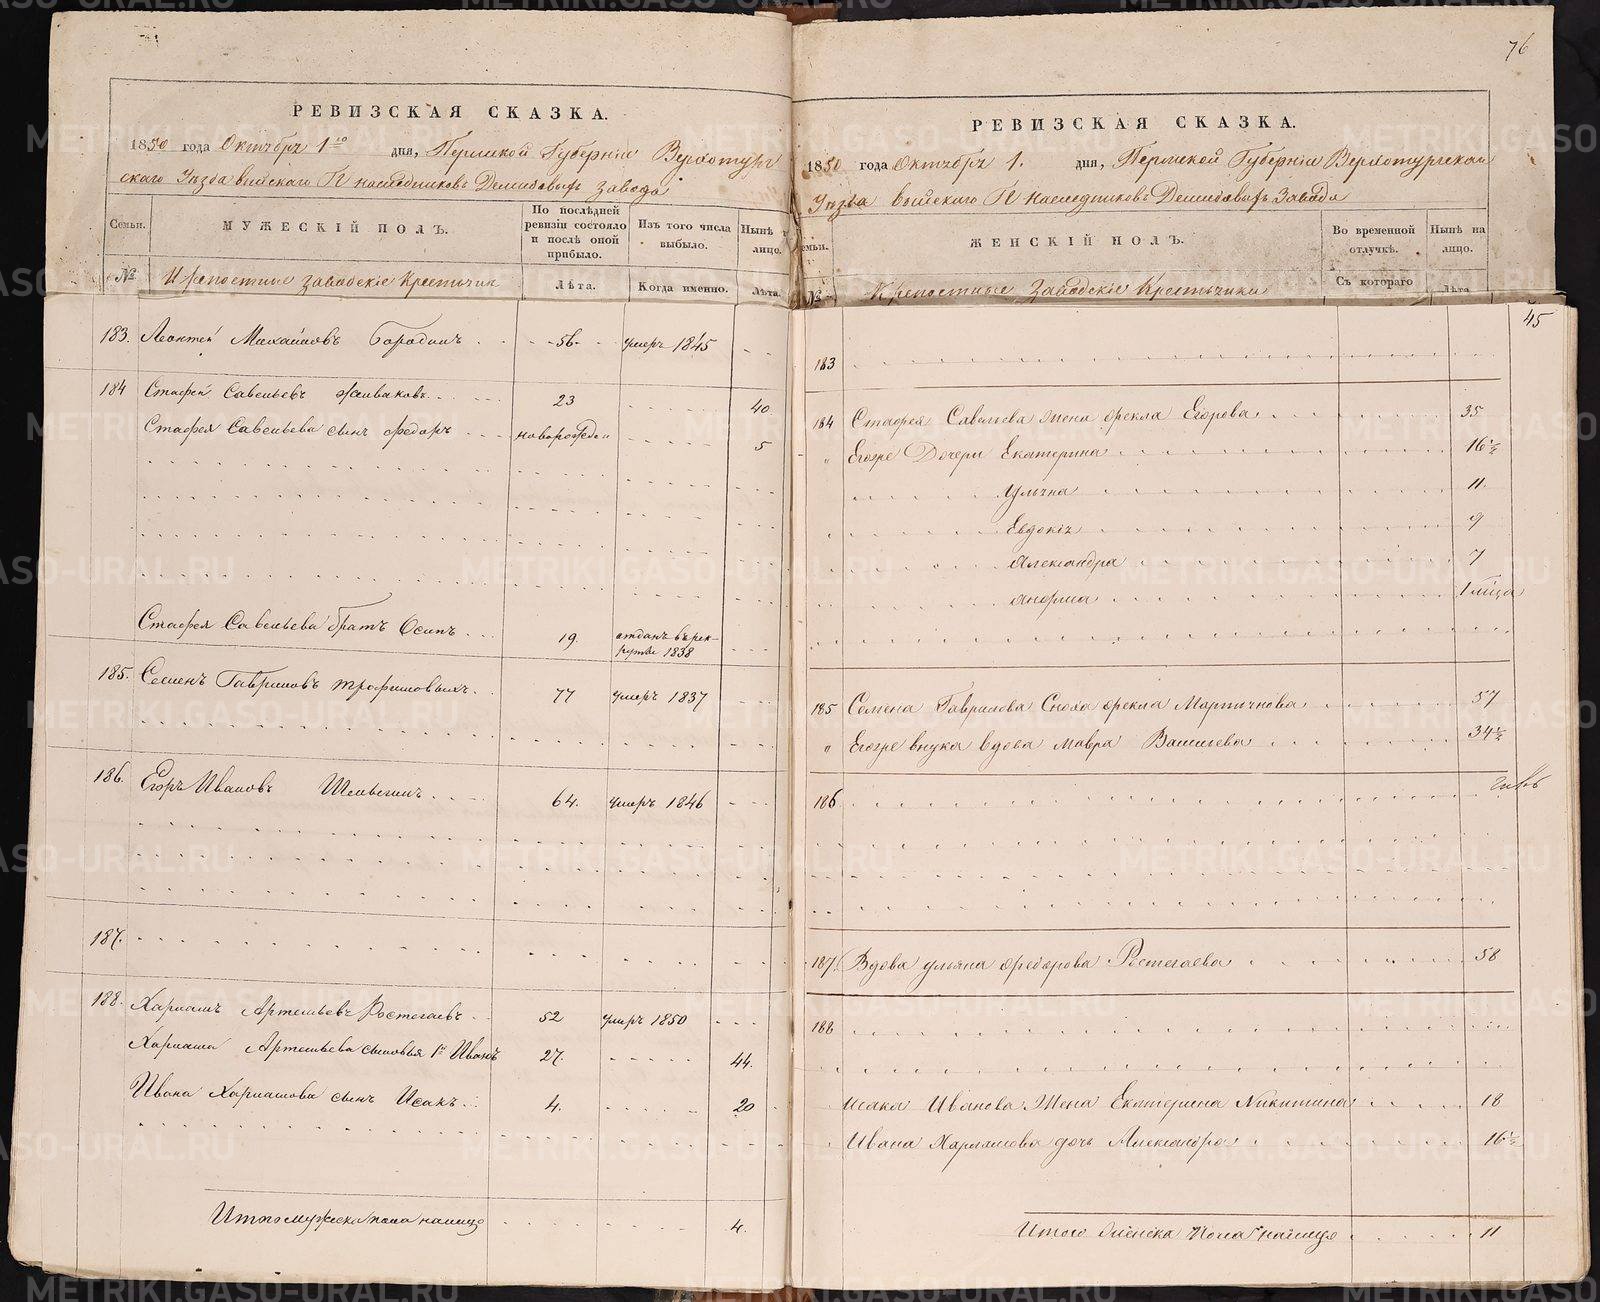 76
РЕВИЗСКАЯ СКАЗКА.
1850 года Октября 1го дня, Пермской Губернiи Верхотур
скаго Уезда Выйскаго Гг наследниковъ Демидовыхъ завода
Семьи. МУЖЕСКIЙ ПОЛЪ. По последней ревизiи состояло и после оной прибыло. Изъ того числа выбыло. Ныне лицо.
№ Крепостные заводскiе Крестьяни Лѣта. Когда именно. Лѣта.
183. Леонтей Михайловъ Бородинъ 56 умеръ 1845
184 Стафей Савельевъ Живаковъ 23 40.
Стафея Савельева сынъ Федоръ новорожден 5
Стафея Савельева братъ Осипъ 19. отданъ въ рек-
руты 1838
185. Семенъ Гавриловъ Трофимовыхъ 77 умеръ 1837
186. Егоръ Ивановъ 64. умеръ 1846
187.
188. Харламъ Артемьевъ Ростегаевъ 52 умеръ 1850
Харлама Артемьева сыновья 1й Иванъ 27. 44.
Ивана Харламова сынъ Исакъ 4. 20
Итого мужеска пола налицо 4.
РЕВИЗСКАЯ СКАЗКА.
1850 года Октября 1. дня, Пермской Губернiи Верхотурскаго
Уезда Выйскаго Гг наследниковъ Демидовыхъ Завода
емьи. ЖЕНСКIЙ ПОЛЪ. Во временной отлучкѣ. Нынѣ на лицо.
№ Крепостные Заводскiе Крестьянки Съ котораго Лѣта
45
183
184 Стафея Савельева жена Фекла Егорова 35
" Егоже Дочери Екатерина 16½
Ульяна 11.
Евдокiя 9
Александра 7
Анфиса 1 мѣсяца
185 Семена Гаврилова Сноха Фекла Мартинова 57
" Егоже внука вдова Мавра Васильева 34½
186
187. Вдова Ульяна Федорова Ростегаева 58
188
Исака Иванова Жена Екатерина Никитина 18
Ивана Харламова дочь Александра 16½
Итого женска пола налицо 11
METRIKI.GASO-URAL.RU